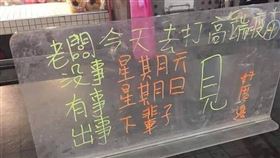 老闆今天去打高端疫苗
沒事 星期六
有事 星期日 見
出事 下輩子